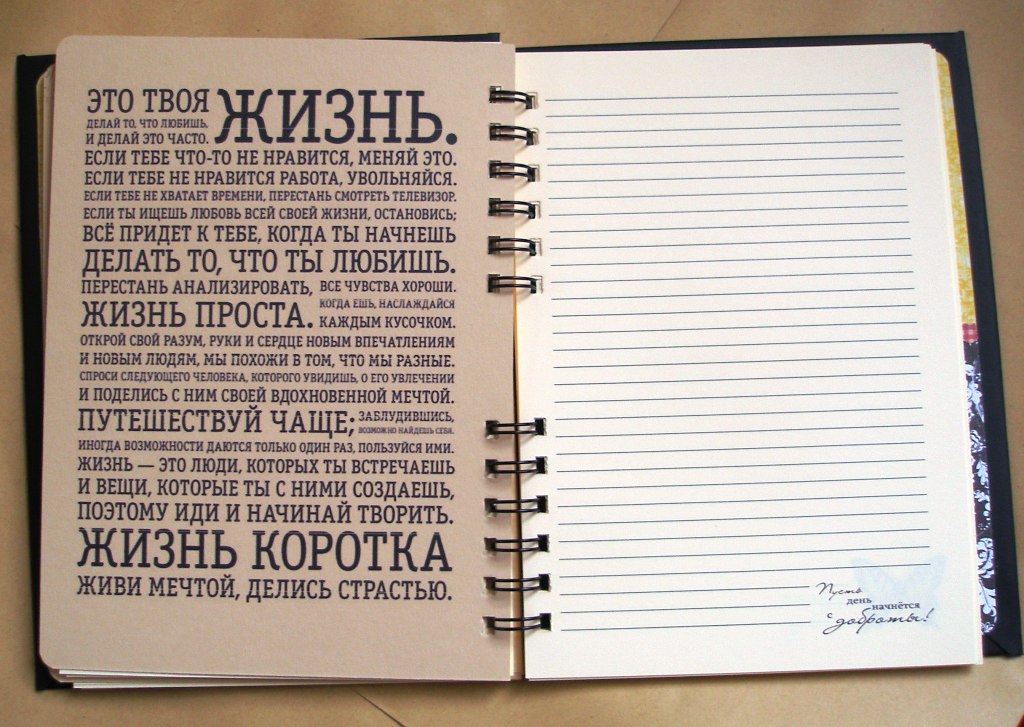 ЭТО ТВОЯ ЖИЗНЬ.
ДЕЛАЙ ТО, ЧТО ЛЮБИШЬ,
И ДЕЛАЙ ЭТО ЧАСТО.
ЕСЛИ ТЕБЕ ЧТО-ТО НЕ НРАВИТСЯ, МЕНЯЙ ЭТО.
ЕСЛИ ТЕБЕ НЕ НРАВИТСЯ РАБОТА, УВОЛЬНЯЙСЯ.
ЕСЛИ ТЕБЕ НЕ ХВАТАЕТ ВРЕМЕНИ, ПЕРЕСТАНЬ СМОТРЕТЬ ТЕЛЕВИЗОР.
ЕСЛИ ТЫ ИЩЕШЬ ЛЮБОВЬ ВСЕЙ СВОЕЙ ЖИЗНИ, ОСТАНОВИСЬ;
ВСЁ ПРИДЕТ К ТЕБЕ, КОГДА ТЫ НАЧНЕШЬ
ДЕЛАТЬ ТО, ЧТО ТЫ ЛЮБИШЬ.
ПЕРЕСТАНЬ АНАЛИЗИРОВАТЬ, ВСЕ ЧУВСТВА ХОРОШИ.
ЖИЗНЬ ПРОСТА. КОГДА ЕШЬ, НАСЛАЖДАЙСЯ
КАЖДЫМ КУСОЧКОМ.
ОТКРОЙ СВОЙ РАЗУМ, РУКИ И СЕРДЦЕ НОВЫМ ВПЕЧАТЛЕНИЯМ
И НОВЫМ ЛЮДЯМ, МЫ ПОХОЖИ В ТОМ, ЧТО МЫ РАЗНЫЕ.
СПРОСИ СЛЕДУЮЩЕГО ЧЕЛОВЕКА, КОТОРОГО УВИДИШЬ, О ЕГО УВЛЕЧЕНИИ
И ПОДЕЛИСЬ С НИМ СВОЕЙ ВДОХНОВЕННОЙ МЕЧТОЙ.
ПУТЕШЕСТВУЙ ЧАЩЕ; ЗАБЛУДИВШИСЬ,
ВОЗМОЖНО НАЙДЕШЬ СЕБЯ.
ИНОГДА ВОЗМОЖНОСТИ ДАЮТСЯ ТОЛЬКО ОДИН РАЗ, ПОЛЬЗУЙСЯ ИМИ.
ЖИЗНЬ — ЭТО ЛЮДИ, КОТОРЫХ ТЫ ВСТРЕЧАЕШЬ
И ВЕЩИ, КОТОРЫЕ ТЫ С НИМИ СОЗДАЕШЬ,
ПОЭТОМУ ИДИ И НАЧИНАЙ ТВОРИТЬ.
ЖИЗНЬ КОРОТКА
ЖИВИ МЕЧТОЙ, ДЕЛИСЬ СТРАСТЬЮ.
Пусть
день
начнётся
с доброты!